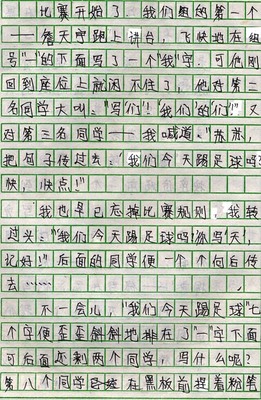 比赛开始了,我们组的第一个
——詹天宇跑上讲台,飞快地在组
号"一"的下面写了一个"我"字,可他刚
回到座位上就闲不住了,他对第二
名同学大叫:"写'们'!'我们'的'们'!"又
对第三名同学——我喊道:"苏苏,
把句子传过去:'我们今天踢足球吗?'
快,快点!"
我也早已忘掉比赛规则,我转
过头:"'我们今天踢足球吗?'你写'天',
记好!"后面的同学便一个个向后传
去……
不一会儿,"我们今天踢足球"七
个字便歪歪斜斜地排在了"一"字下面
可后面还剩两个同学,写什么呢?
第八个同学已经在黑板前捏着粉笔